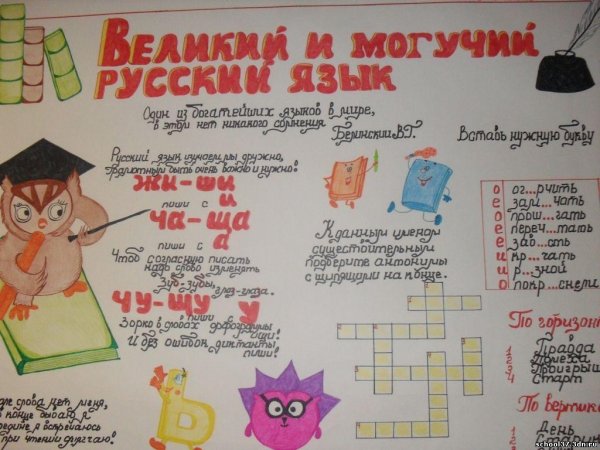 Великий и могучий
русский язык
Один из богатейших языков в мире,
в этом нет никакого сомнения
Белинский В.Г.
Русский язык изучаем мы дружно,
грамотным быть очень важно и нужно!
жи-ши
пиши с и
ча-ща
пиши с а
Чтоб согласную писать
надо слово изменять
Зуб-зубы, глаз-глаза.
чу-щу у
пиши
Зорко в словах орфограммы
ищи!
И без ошибок диктанты
пиши!
слова нет меня,
в конце бываю я
я встречаюсь
при чтении
Ь
К данным именам
существительным
подберите антонимы
с шипящими на конце.
Вставь нужную букву
о ог...рчить
о зам...чать
е прош...гать
е переч...тать
е зав...сть
и кр...чать
и р...зной
о покр...снели
По горизон
1 Правда
2 Помеха
3 Проигрыш
4 Старт
По вертик
1 День
2 Старин
school37.3dn.ru